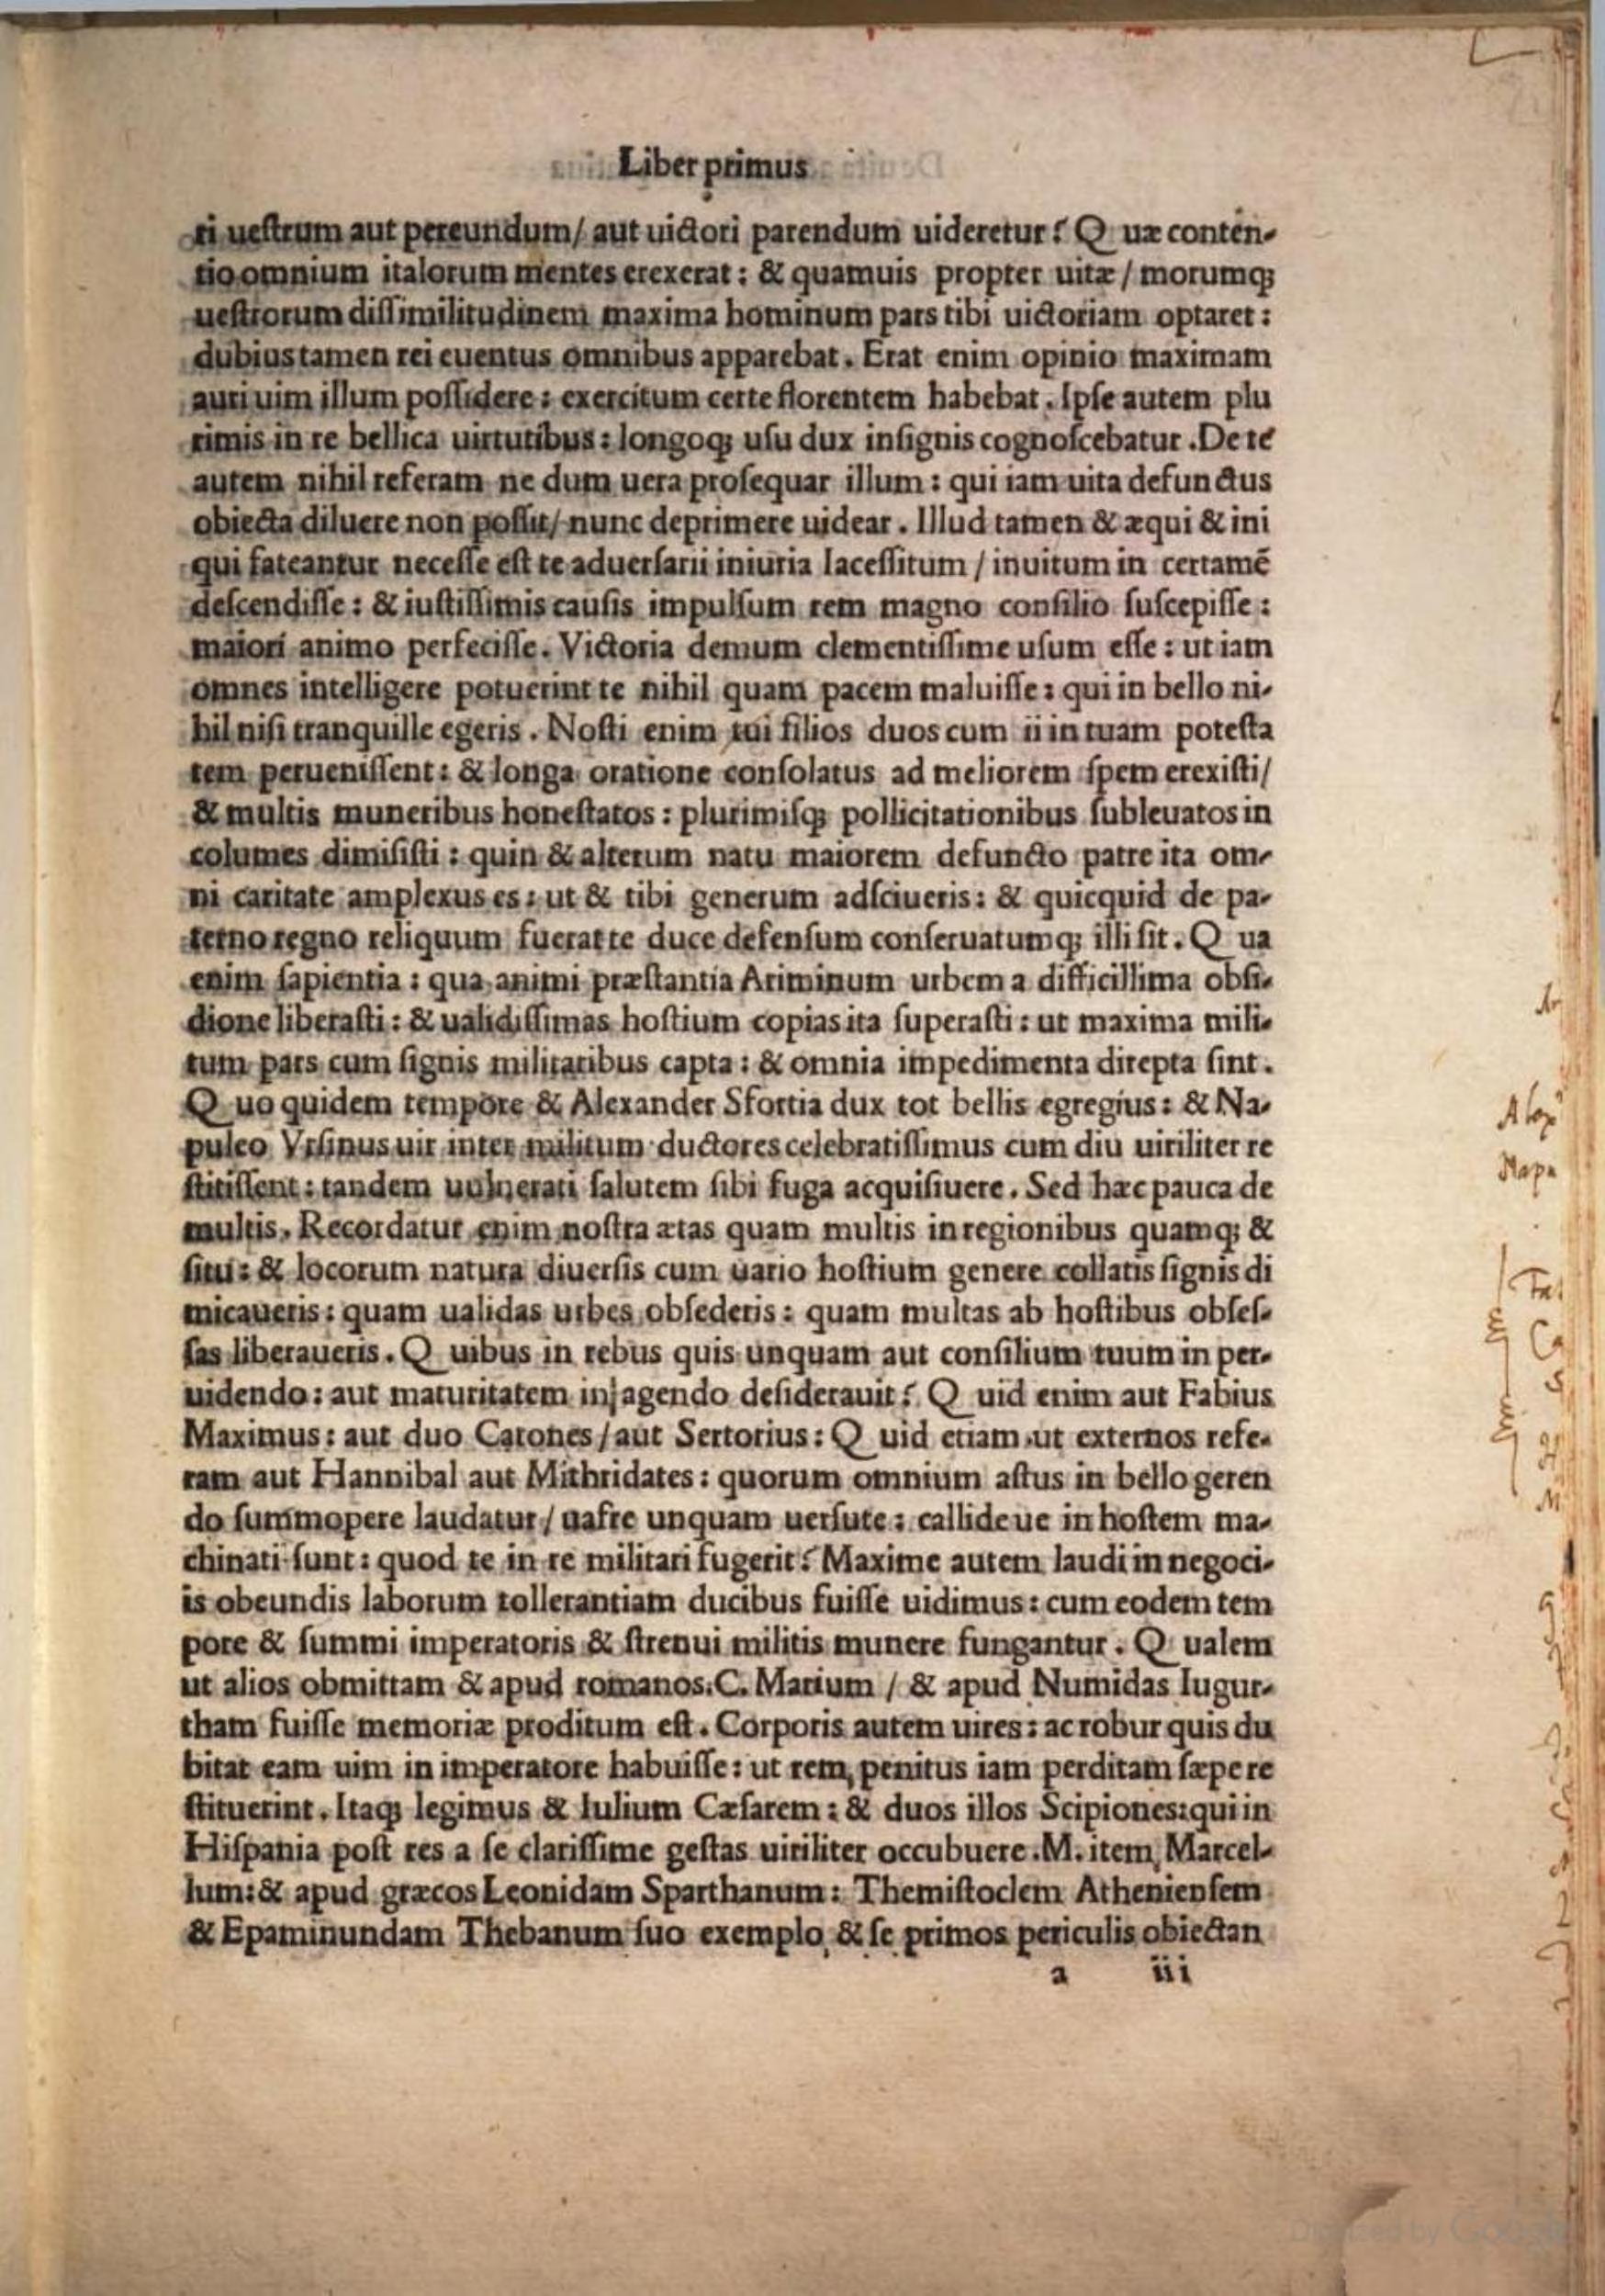 Liber primus
ri uestrum aut pereundum/ aut uictori parendum uideretur? Q uæ conten-
tio omnium italorum mentes erexerat: & quamuis propter uitæ / morumq;
uestrorum dissimilitudinem maxima hominum pars tibi uictoriam optaret:
dubius tamen rei euentus omnibus apparebat. Erat enim opinio maximam
auri uim illum possidere: exercitum certe florentem habebat. Ipse autem plu
rimis in re bellica uirtutibus: longoq; usu dux insignis cognoscebatur. De te
autem nihil referam ne dum uera prosequar illum: qui iam uita defunctus
obiecta diluere non possit/ nunc deprimere uidear. Illud tamen & æqui & ini
qui fateantur necesse est te aduersarii iniuria lacessitum / inuitum in certamē
descendisse: & iustissimis causis impulsum rem magno consilio suscepisse:
maiori animo perfecisse. Victoria demum clementissime usum esse: ut iam
omnes intelligere potuerint te nihil quam pacem maluisse: qui in bello ni-
hil nisi tranquille egeris. Nosti enim tui filios duos cum ii in tuam potesta
tem peruenissent: & longa oratione consolatus ad meliorem spem erexisti/
& multis muneribus honestatos: plurimisq; pollicitationibus subleuatos in
columes dimisisti: quin & alterum natu maiorem defuncto patre ita om-
ni caritate amplexus es: ut & tibi generum adsciueris: & quicquid de pa-
terno regno reliquum fuerat te duce defensum conseruatumq; illi sit. Q ua
enim sapientia: qua animi præstantia Ariminum urbem a difficillima obsi-
dione liberasti: & ualidissimas hostium copias ita superasti: ut maxima mili-
tum pars cum signis militaribus capta: & omnia impedimenta direpta sint.
Q uo quidem tempore & Alexander Sfortia dux tot bellis egregius: & Na-
puleo Vrsinus uir inter militum ductores celebratissimus cum diu uiriliter re
stitissent: tandem uulnerati salutem sibi fuga acquisiuere. Sed hæc pauca de
multis. Recordatur enim nostra ætas quam multis in regionibus quamq; &
situ: & locorum natura diuersis cum uario hostium genere collatis signis di
micaueris: quam ualidas urbes obsederis: quam multas ab hostibus obses-
sas liberaueris. Q uibus in rebus quis unquam aut consilium tuum in per-
uidendo: aut maturitatem in agendo desiderauit? Q uid enim aut Fabius
Maximus: aut duo Catones / aut Sertorius: Q uid etiam ut externos refe-
ram aut Hannibal aut Mithridates: quorum omnium astus in bello geren
do summopere laudatur / uafre unquam uersute: callide ue in hostem ma-
chinati sunt: quod te in re militari fugerit? Maxime autem laudi in negoci-
is obeundis laborum tollerantiam ducibus fuisse uidimus: cum eodem tem
pore & summi imperatoris & strenui militis munere fungantur. Q ualem
ut alios obmittam & apud romanos.C. Marium / & apud Numidas Iugur-
tham fuisse memoriæ proditum est. Corporis autem uires: ac robur quis du
bitat eam uim in imperatore habuisse: ut rem penitus iam perditam sæpe re
stituerint. Itaq; legimus & Iulium Cæsarem: & duos illos Scipiones:qui in
Hispania post res a se clarissime gestas uiriliter occubuere.M. item Marcel-
lum:& apud græcos Leonidam Sparthanum: Themistoclem Atheniensem
& Epaminundam Thebanum suo exemplo & se primos periculis obiectan
a iii
Digitized by Google